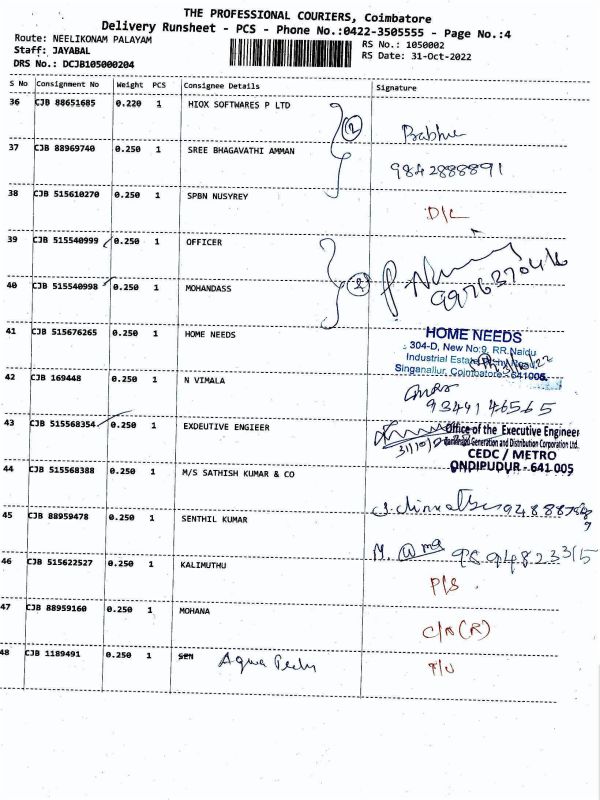 THE PROFESSIONAL COURIERS, Coimbatore
Delivery Runsheet - PCS - Phone No.:0422-3505555 - Page No.:4
Route: NEELIKONAM PALAYAM
RS No.: 1050002
Staff: JAYABAL
RS Date: 31-Oct-2022
DRS No.: DCJB105000204
S No Consignment No Weight PCS Consignee Details Signature
36 CJB 88651685 0.220 1 HIOX SOFTWARES P LTD
2
37 CJB 88969740 0.250 1 SREE BHAGAVATHI AMMAN
9842888891
38 CJB 515610270 0.250 1 SPBN NUSYREY
D/L
39 CJB 515540999 0.250 1 OFFICER
40 CJB 515540998 0.250 1 MOHANDASS
2
41 CJB 515676265 0.250 1 HOME NEEDS
HOME NEEDS
304-D, New No:9, RR.Naidu
Industrial Estate
Singanallur, Coimbatore - 641005.
42 CJB 169448 0.250 1 N VIMALA
9344146565
43 CJB 515568354 0.250 1 EXDEUTIVE ENGIEER
Office of the Executive Engineer
Generation and Distribution Corporation Ltd.
CEDC / METRO
ONDIPUDUR - 641 005
44 CJB 515568388 0.250 1 M/S SATHISH KUMAR & CO
45 CJB 88959478 0.250 1 SENTHIL KUMAR
46 CJB 515622527 0.250 1 KALIMUTHU
P/S
47 CJB 88959160 0.250 1 MOHANA
C/N (R)
48 CJB 1189491 0.250 1 SEN Aqua Tech